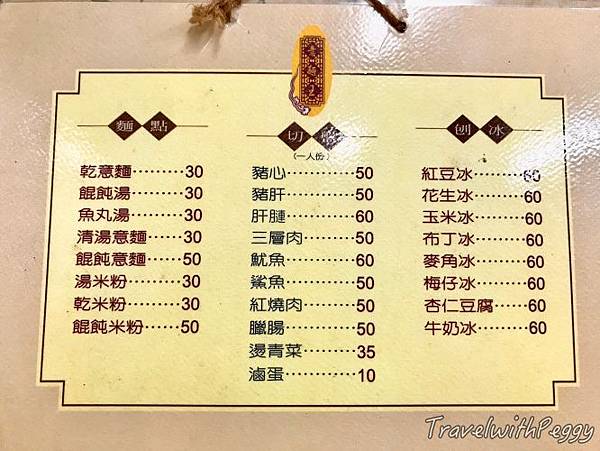 麵點
乾意麵………30
餛飩湯………30
魚丸湯………30
清湯意麵……30
餛飩意麵……50
湯米粉………30
乾米粉………30
餛飩米粉……50
切
(一人份)
豬心…………50
豬肝…………50
肝腱…………60
三層肉………50
魷魚…………60
鯊魚…………50
紅燒肉………50
臘腸…………50
燙青菜………35
滷蛋…………10
刨冰
紅豆冰………60
花生冰………60
玉米冰………60
布丁冰………60
麥角冰………60
梅仔冰………60
杏仁豆腐……60
牛奶冰………60
TravelwithPeggy